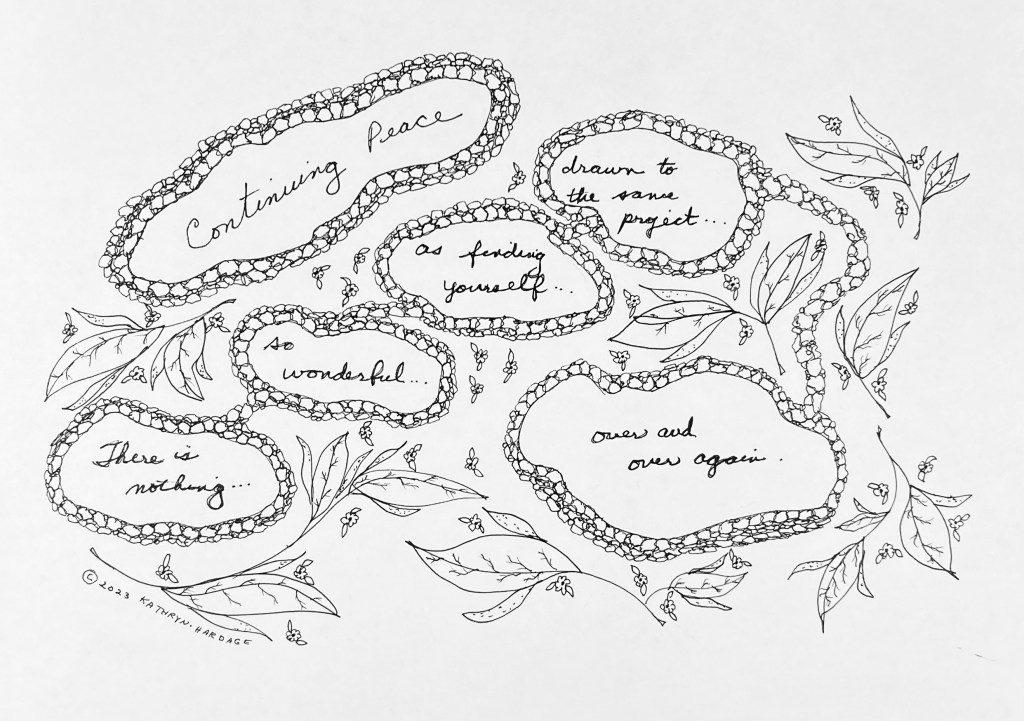 Continuing Peace
There is
nothing...
so
wonderful...
as finding
yourself...
drawn to
the same
project...
over and
over again.
© 2023 KATHRYN HARDAGE